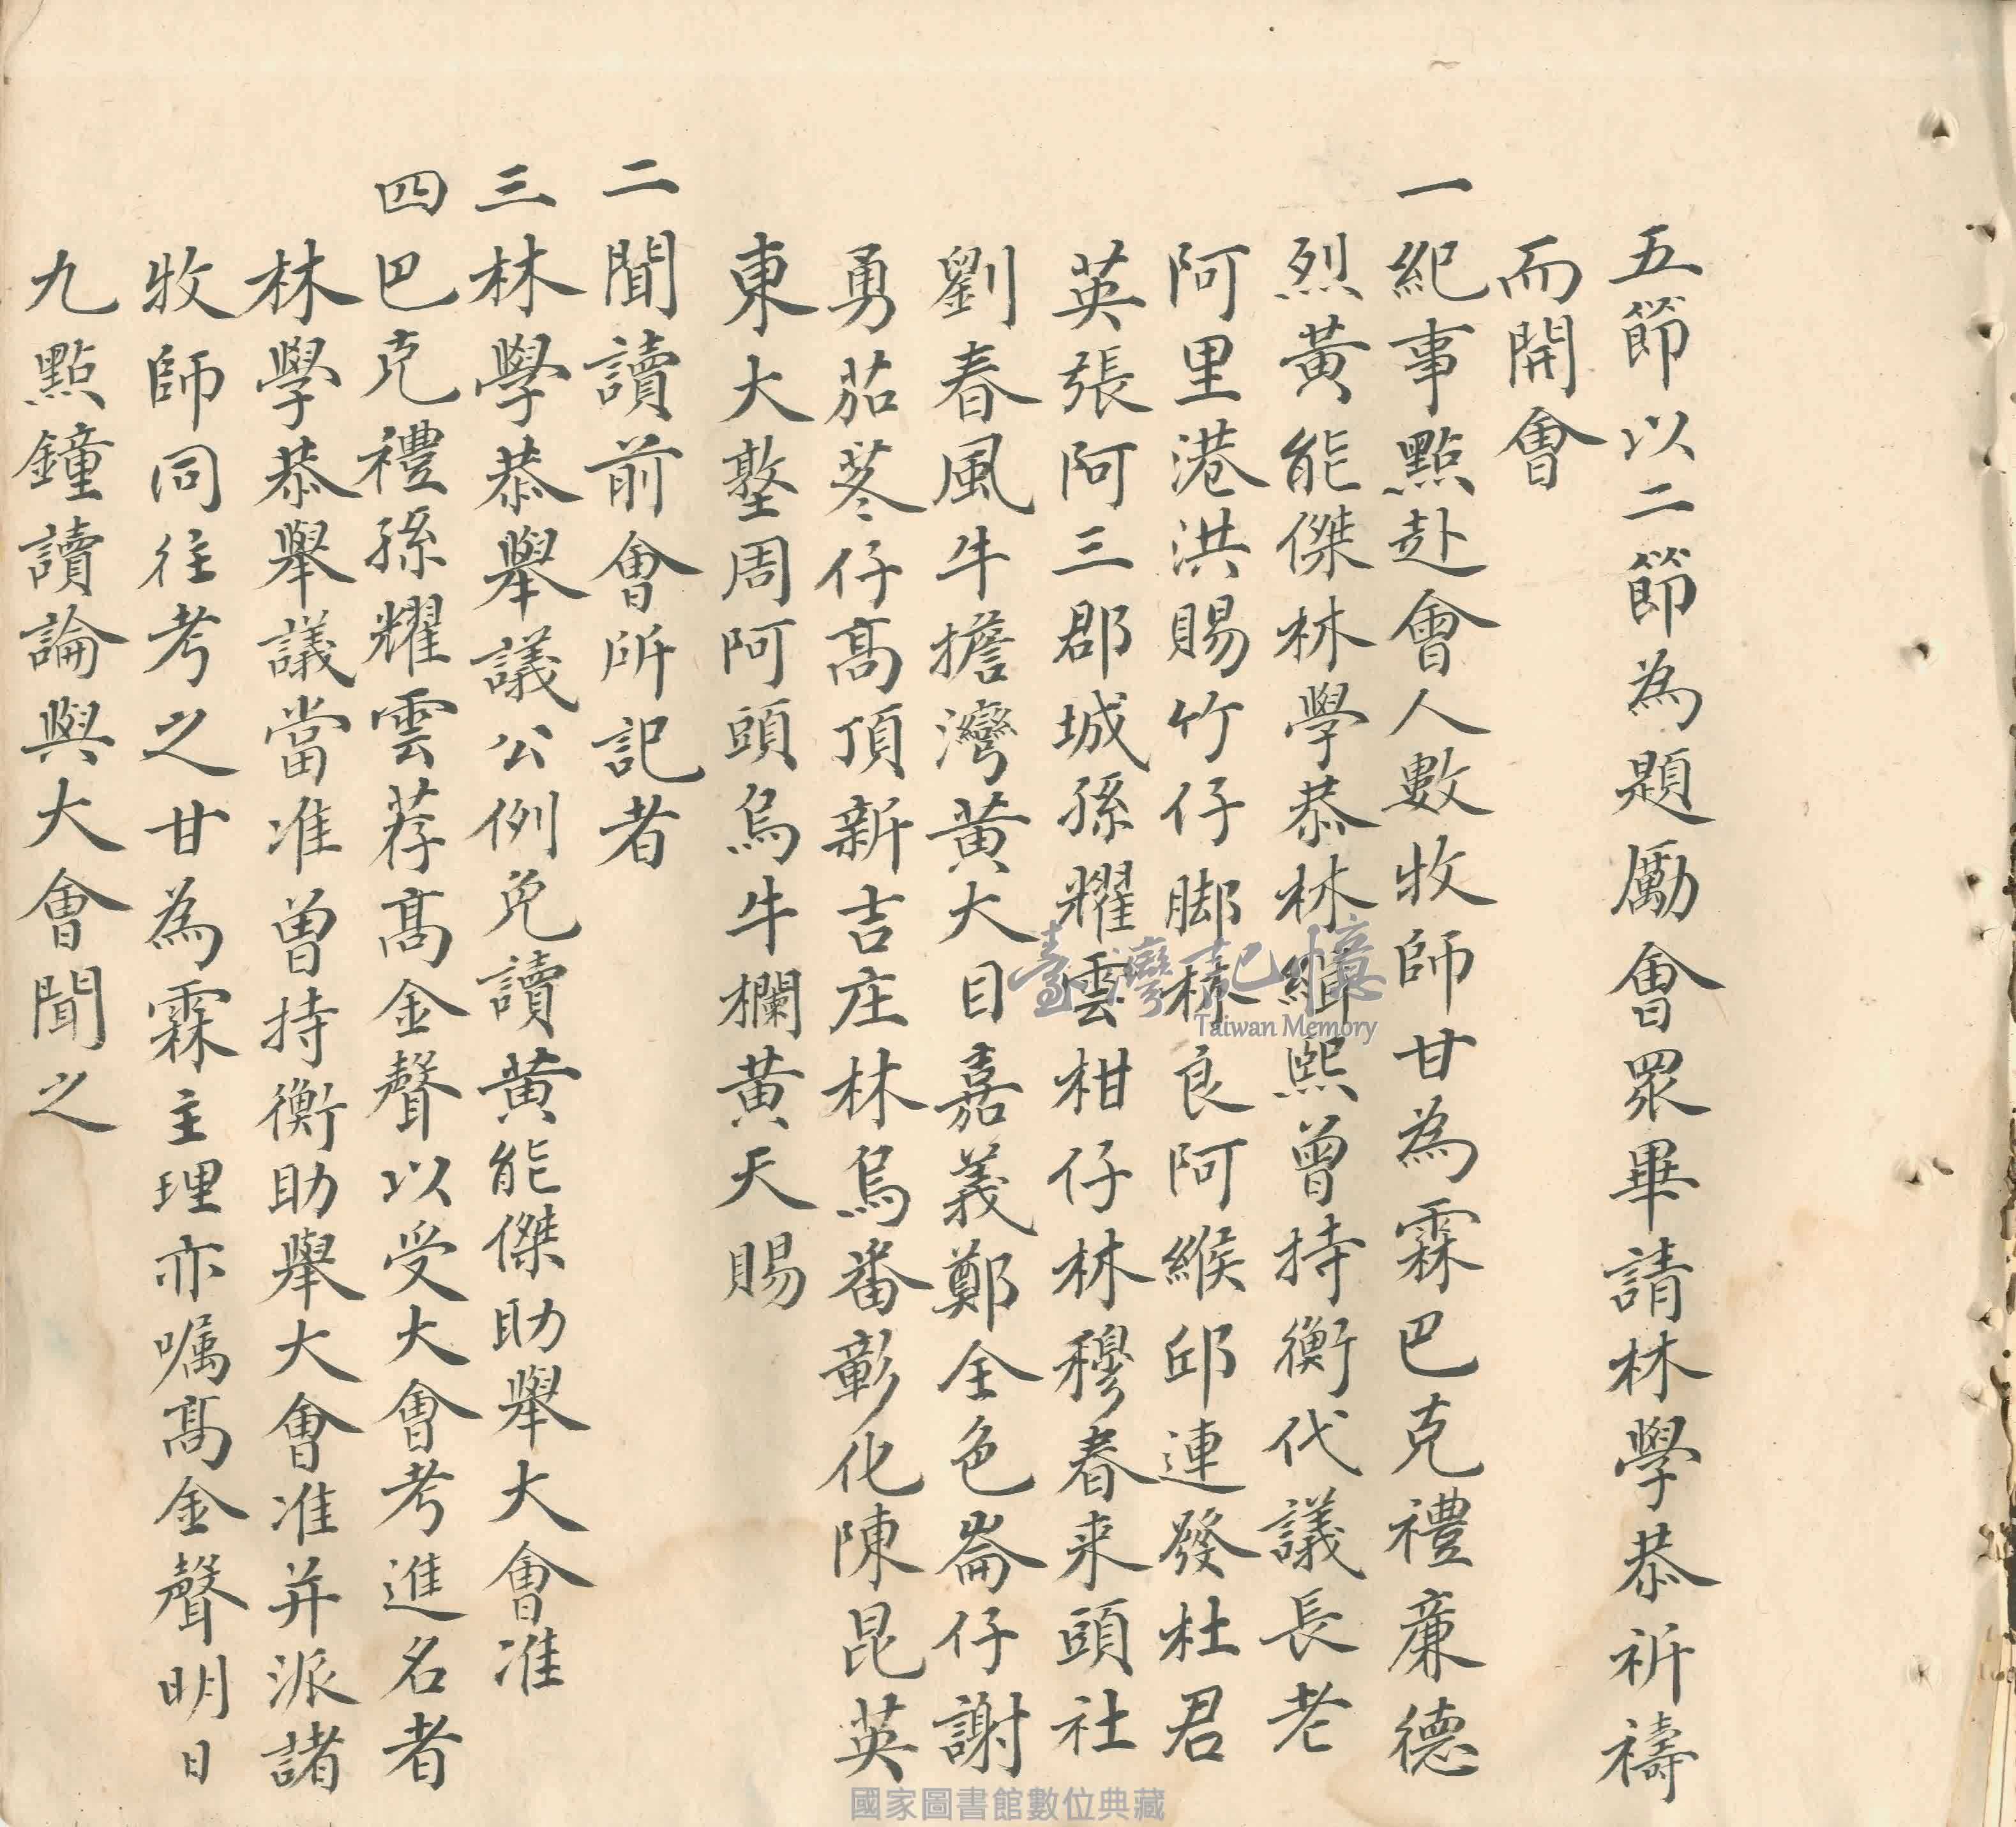 五節以二節為題勵會眾畢請林學恭祈禱
而開會
一紀事點赴會人數牧師甘為霖巴克禮廉德
烈黃能傑林學恭林緝熙曾持衡代議長老
阿里港洪賜竹仔脚林良阿緱邱連發杜君
英張阿三郡城孫耀雲柑仔林穆春来頭社
劉春風牛擔灣黃大目嘉義鄭全色崙仔謝
勇茄苳仔高頂新吉庄林烏番彰化陳昆英
東大墪周阿頭烏牛欄黃天賜
二聞讀前會所記者
三林學恭舉議公例免讀黃能傑助舉大會准
四巴克禮孫耀雲荐高金聲以受大會考進名者
林學恭舉議當准曾持衡助舉大會准并派諸
牧師同往考之甘為霖主理亦嘱高金聲明日
九點鐘讀論與大會聞之
臺灣記憶
Taiwan Memory
國家圖書館數位典藏